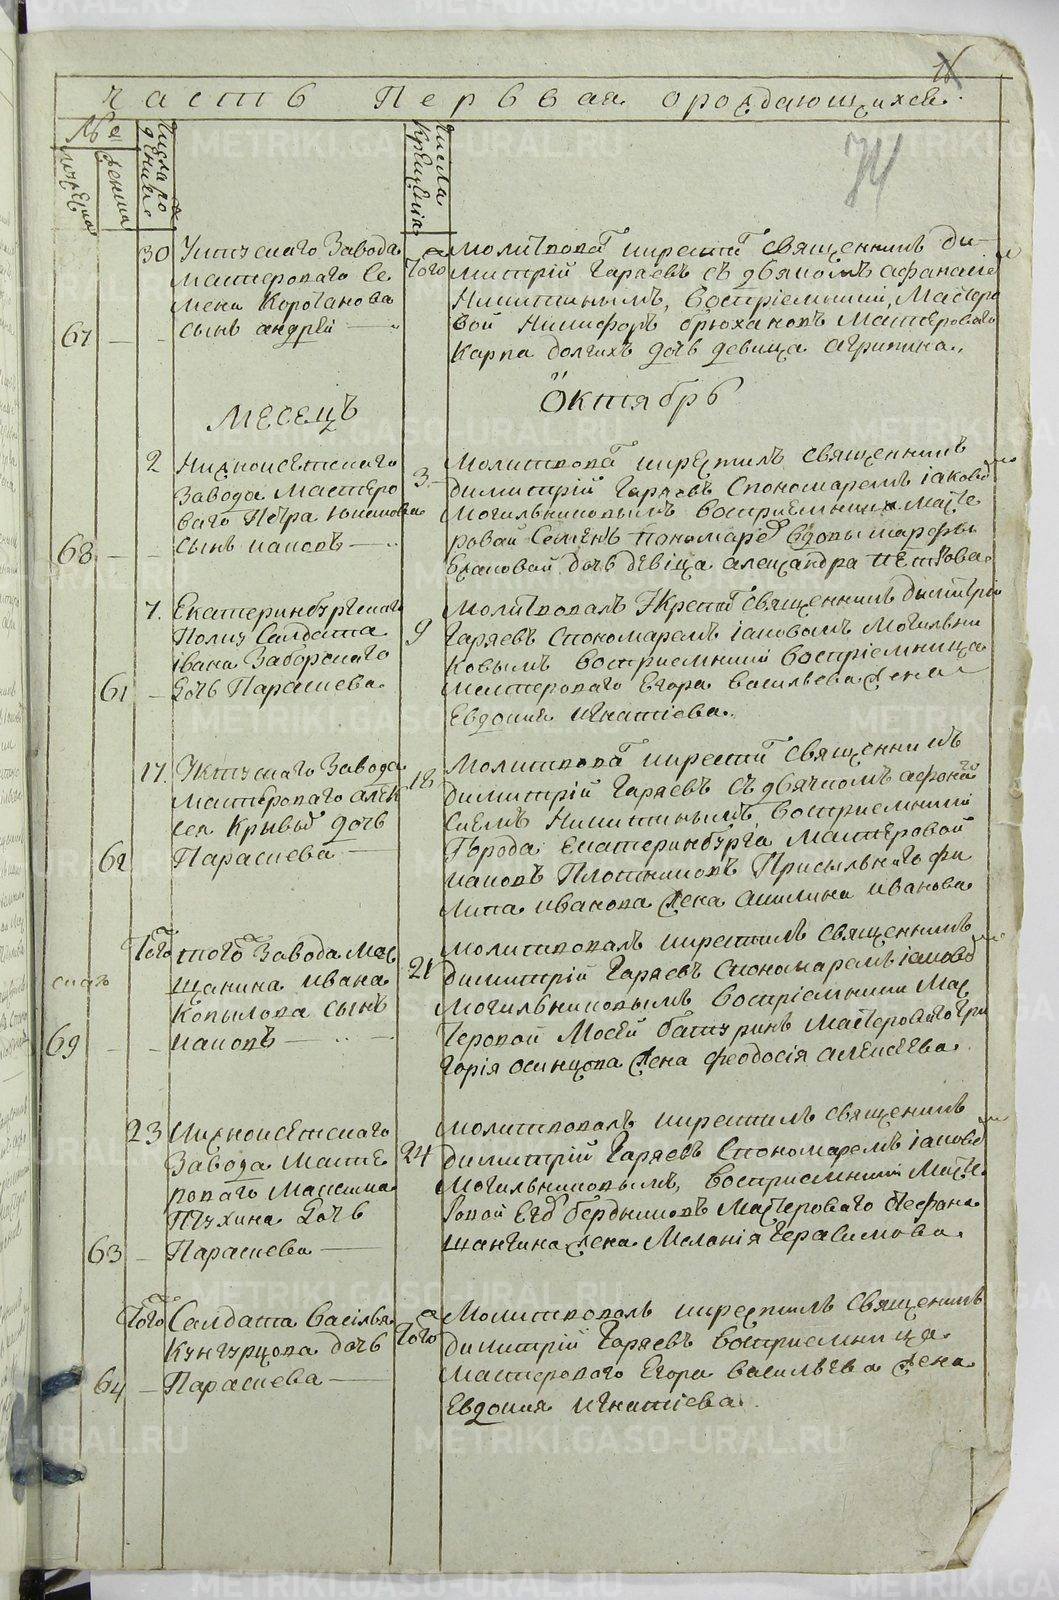 часть Первая орождающихся.
74
№
мужеска
женска
числа рождения
числа крещения
67
30
Уктускаго Завода
Мастероваго Се
мена Коротанова
сынъ андрей
Того
Молитвовал и крестил Священникъ Ди
митрій Гаряевъ съ дьякомъ афанасие
Никитинымъ, восприемники, Мастеро
вой Никифоръ брюхановъ Мастероваго
Карпа долгихъ дочь девица агрипина.
Месецъ Октябрь
68
2
Нижноисетскаго
Завода Мастеро
ваго Петра
сынъ иаковъ
3
Молитвовал и крестилъ священникъ
димитрій Гаряевъ Спономаремъ іаково
Могильниковымъ восприемники Масте
ровай Семенъ пономарев вдовы марфы
дочь девіца александра петрова
61
7.
Екатеринбургскаго
Полку Салдата
івана Заборскаго
дочь Параскева.
9
Молитвовалъ Крестил Священникъ Димитрій
Гаряевъ Спономаремъ іаковомъ Могильни
ковымъ восприемники восприемница
Мастероваго Егора васильева жена
Евдокия игнатіева.
62
17.
Уктускаго Завода
Мастероваго алек
сея Крывых дочь
Параскева
18
Молитвовал и крестил священникъ
димитрій Гаряевъ съ дьячкомъ афона
сиемъ Никитинымъ восприемники
Города Екатеринбурга Мастеровой
иаковъ Плотниковъ Присыльнаго фи
липа иванова жена акилина иванова
69
Того
того Завода Мас
щанина ивана
Копылова сынъ
иаковъ
21
Молитвовалъ и крестилъ священникъ
димитрій Гаряевъ Спономаремъ іаково
Могильниковымъ восприемники Мас
теровой Мосей батуринъ Мастероваго Гри
горія осинцова жена феодосія алексеева.
63
23
Нижноисетскаго
Завода Масте
роваго Максима
Птухина дочь
Параскева
24
Молитвовалъ и крестилъ священникъ
димитрій Гаряевъ Спономаремъ іаково
Могильниковымъ, восприемники Масте
ровой Егор бердниковъ Мастероваго стефана
шангина жена Меланія Герасимова.
64
Того
Салдата васілья
Кунгурцова дочь
Параскева
Того
Молитвовалъ и крестилъ священникъ
димитрій Гаряевъ восприемница
Мастероваго Егора васильева жена
Евдокия игнатіева.
METRIKI.GASO-URAL.RU